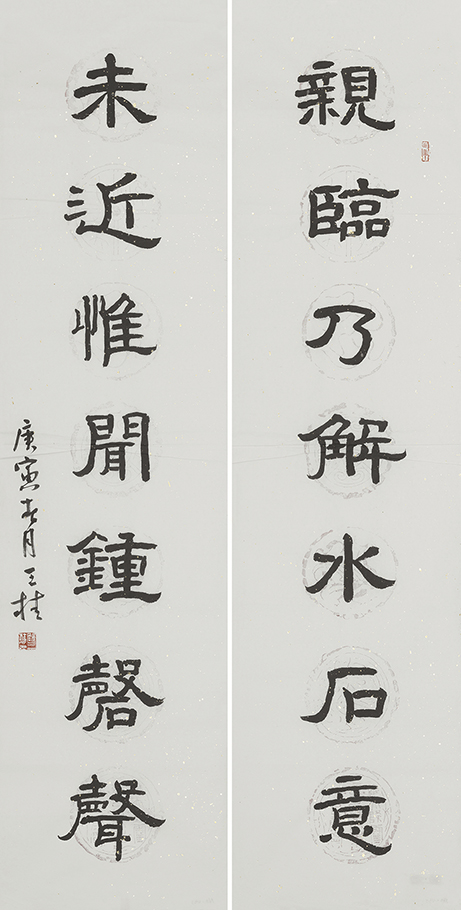 親臨乃解水石意
未近惟聞鍾磬聲
庚寅春月天桂